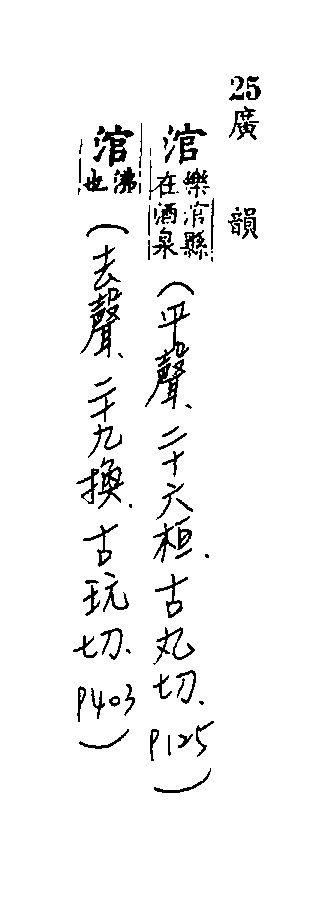 25廣韻
涫樂涫縣在酒泉(平聲、二十六桓、古丸切、P125)
涫沸也(去聲、二十九換、古玩切、P403)